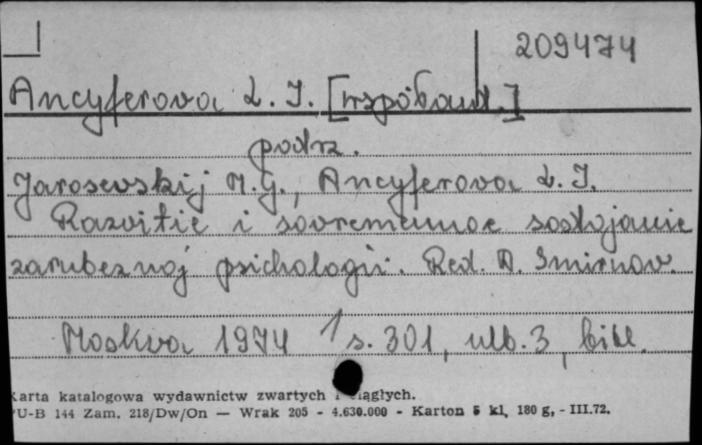 209474
Ancyferova L. I. [współaut.]
podrz.
Jarosevskij M. G., Ancyferova L. I.
Razvitie i sovremennoe sostojanie
zarubeznoj psichologii. Red. A. Smirnov.
Moskva 1974 s. 301, ulb. 3, bibl.
Karta katalogowa wydawnictw zwartych i ciągłych.
PU-B 144 Zam. 218/Dw/On — Wrak 205 - 4.630.000 - Karton 5 kl, 180 g, - III.72.